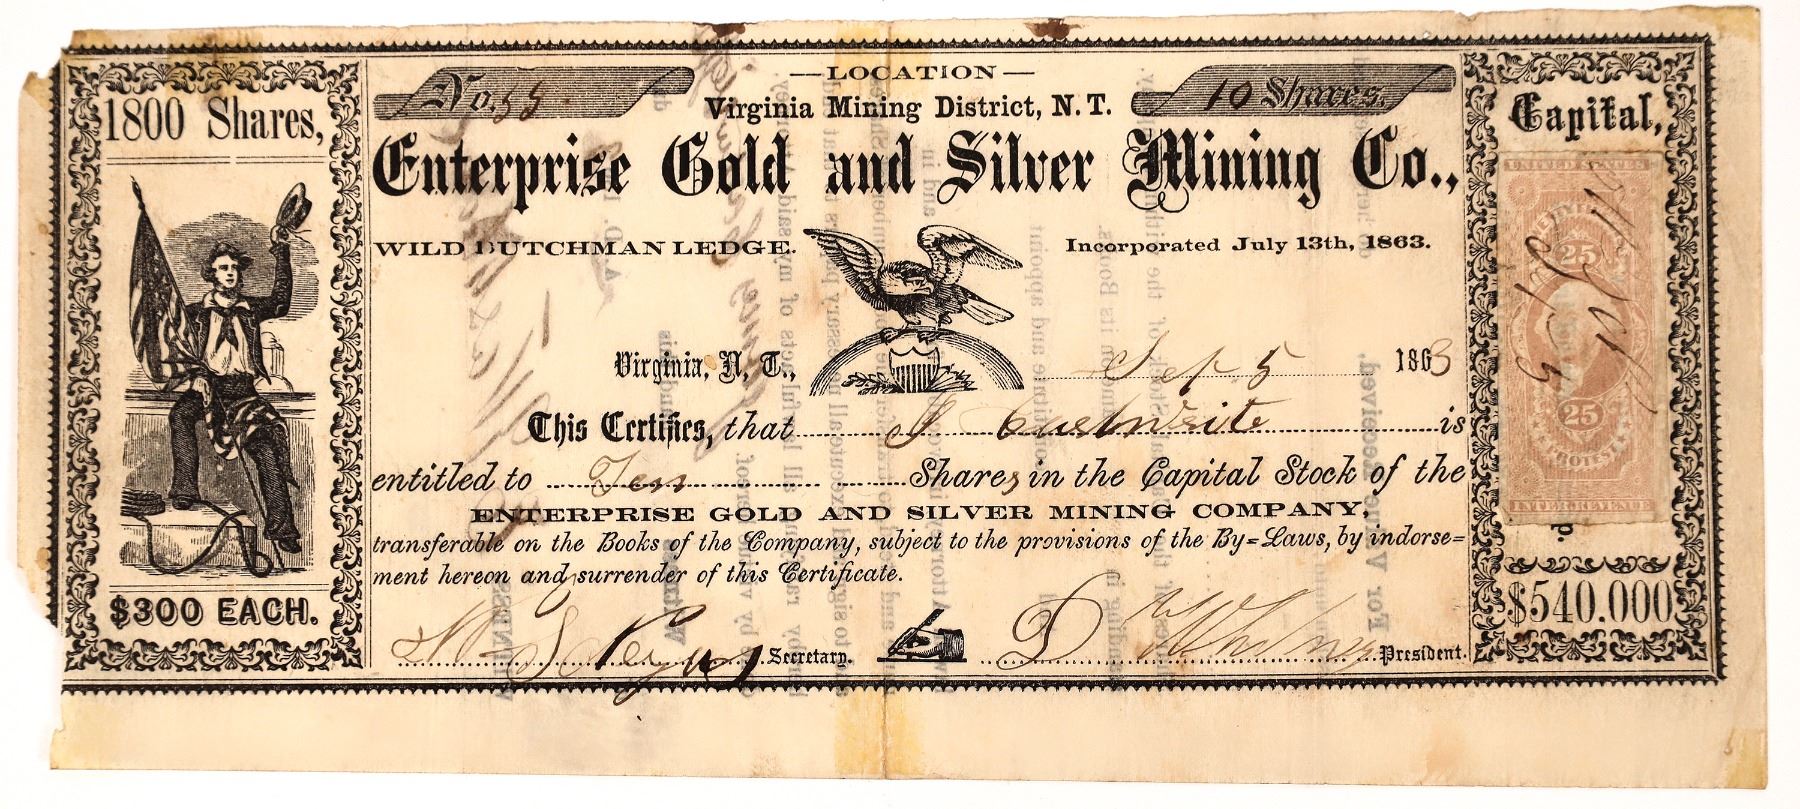 1800 Shares,
$300 EACH.
No. 55
—LOCATION—
Virginia Mining District, N. T.
10 Shares.
Enterprise Gold and Silver Mining Co.,
WILD DUTCHMAN LEDGE.
Incorporated July 13th, 1863.
Virginia, N. T., Sep 5 1863
This Certifies, that J is
entitled to Ten Shares in the Capital Stock of the
ENTERPRISE GOLD AND SILVER MINING COMPANY,
transferable on the Books of the Company, subject to the provisions of the By=Laws, by indorse=
ment hereon and surrender of this Certificate.
Secretary.
D Whitney President.
Capital,
UNITED STATES
25
25
PROTEST
INTER. REVENUE
$540.000